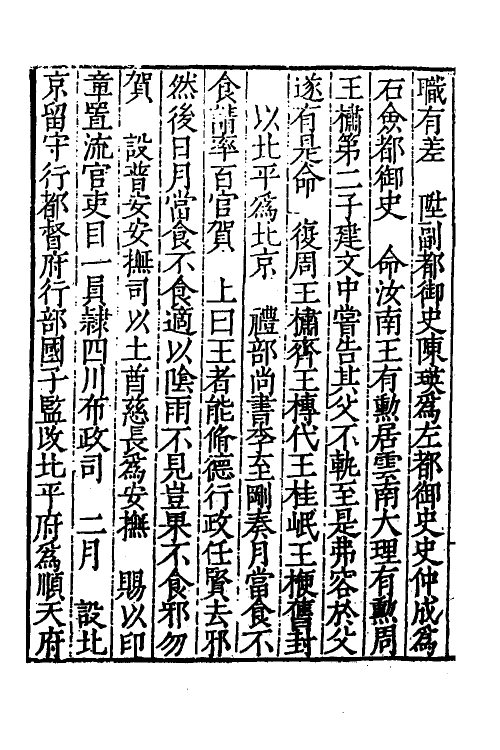 職有差　陞副都御史陳瑛爲左都御史史仲成爲
右僉都御史　命汝南王有勲居雲南大理有勲周
王橚第二子建文中嘗告其父不軌至是弗容於父
遂有是命　復周王橚齊王榑代王桂岷王楩舊封
以北平爲北京　禮部尚書李至剛奏月當食不
食請率百官賀　上曰王者能脩德行政任賢去邪
然後日月當食不食適以陰雨不見豈果不食邪勿
賀　設普安安撫司以土酋慈長爲安撫　賜以印
章置流官吏目一員隷四川布政司　二月　設北
京留守行都督府行部國子監改北平府爲順天府